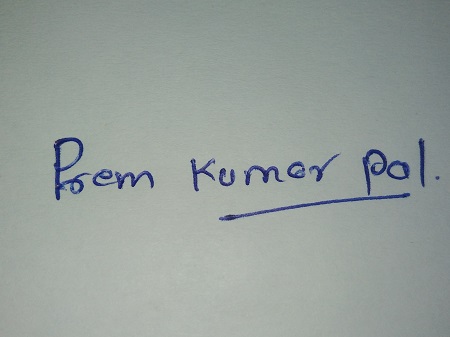 Prem Kumar pal.